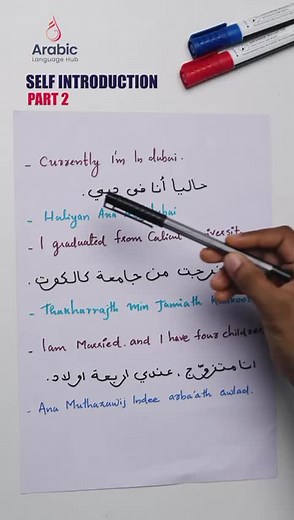 Arabic
Language Hub
SELF INTRODUCTION
PART 2
- Currently I'm In dubai.
حاليا أنا في دبي.
- Haliyan Ana dubai
- I graduated from Calicut
من جامعة كالكوت.
- Thakharrajth min Jamiath
- I am Married. and I have four children
انا متزوّج، عندي اربعة اولاد.
- Ana Muthazawij Indee arba'ath awlad.